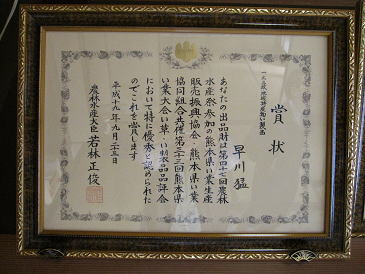 賞状
早川 猛
あなたの出品財は第四十七回農林
水産祭参加の熊本県い業生産
販売振興協会・熊本県い業
協同組合共催第三十三回熊本県
い業大会い草・い製品品評会
において特に優秀と認められた
のでこれを賞します
平成十九年九月二十三日
農林水産大臣 若林正俊